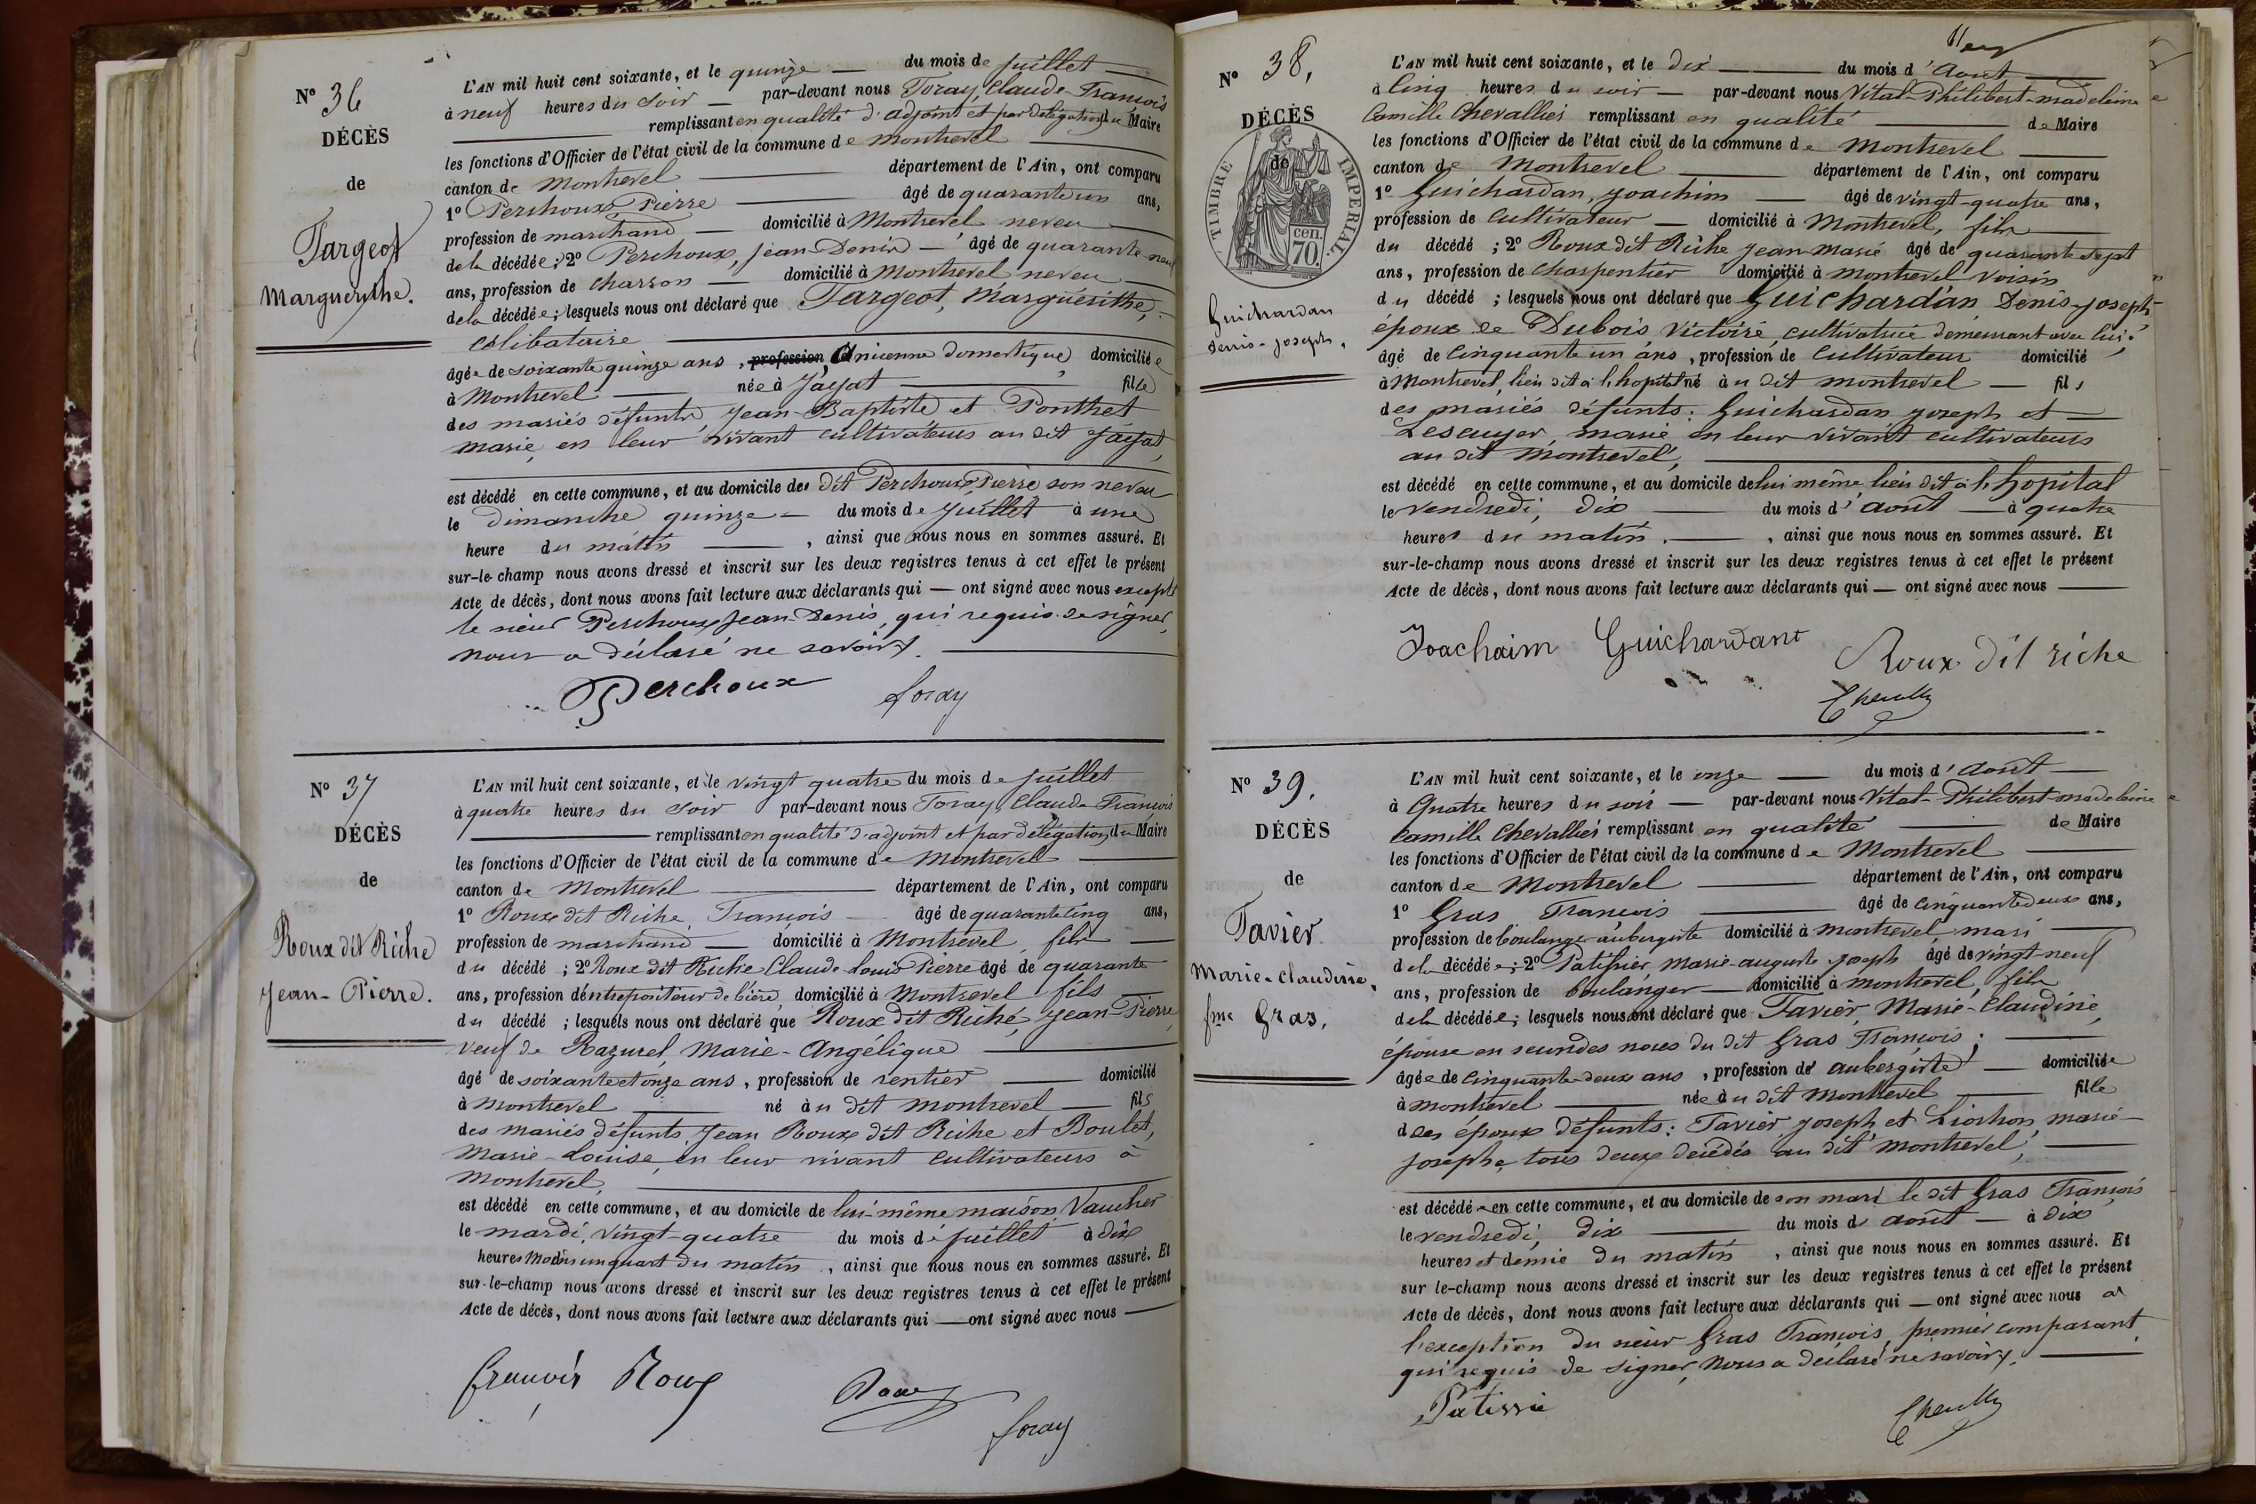 N° 36
DÉCÈS
de
Targeot
Marguerithe.
L'AN mil huit cent soixante, et le quinze — du mois de juillet —
à neuf heures du soir — par-devant nous Foray, Claude-François
— remplissant en qualité d'adjoint et par délégation du Maire
les fonctions d'Officier de l'état civil de la commune de Montrevel —
canton de Montrevel — département de l'Ain, ont comparu
1° Perchoux Pierre — âgé de quarante un ans,
profession de marchand — domicilié à Montrevel neveu —
de la décédée; 2° Perchoux, Jean Denis — âgé de quarante neuf
ans, profession de charron — domicilié à Montrevel neveu —
de la décédée; lesquels nous ont déclaré que Targeot, Marguerithe,
célibataire —
âgée de soixante quinze ans, profession Ancienne domestique, domiciliée
à Montrevel — née à Jayat — fille
des mariés défunts, Jean-Baptiste et Ponthet
marie, en leur vivant cultivateurs au dit Jayat,
est décédé en cette commune, et au domicile de dit Perchoux Pierre son neveu
le Dimanche quinze — du mois de juillet à une
heure du matin —, ainsi que nous nous en sommes assuré. Et
sur-le-champ nous avons dressé et inscrit sur les deux registres tenus à cet effet le présent
Acte de décès, dont nous avons fait lecture aux déclarants qui — ont signé avec nous excepté
le sieur Perchoux Jean-Denis, qui requis de signer,
nous a déclaré ne savoir. —
Perchoux foray
N° 37
DÉCÈS
de
Roux dit Riche
Jean-Pierre.
L'AN mil huit cent soixante, et le vingt quatre du mois de juillet
à quatre heures du soir par-devant nous Foray Claude François
— remplissant en qualité d'adjoint et par délégation, du Maire
les fonctions d'Officier de l'état civil de la commune de Montrevel —
canton de Montrevel — département de l'Ain, ont comparu
1° Roux dit Riche François — âgé de quarante cinq ans,
profession de marchand — domicilié à Montrevel, fils —
du décédé; 2° Roux dit Riche Claude-Louis Pierre âgé de quarante
ans, profession d'entrepositeur de bière, domicilié à Montrevel fils —
du décédé; lesquels nous ont déclaré que Roux dit Riche, Jean-Pierre,
veuf de Razurel, Marie-Angélique —
âgé de soixante et onze ans, profession de rentier — domicilié
à Montrevel — né au dit Montrevel — fils
des mariés défunts, Jean Roux dit Riche et Boulet,
Marie-Louise, en leur vivant cultivateurs à
Montrevel, —
est décédé en cette commune, et au domicile de lui-même maison Vaucher
le mardi, vingt-quatre du mois de juillet à dix
heures moins un quart du matin, ainsi que nous nous en sommes assuré. Et
sur-le-champ nous avons dressé et inscrit sur les deux registres tenus à cet effet le présent
Acte de décès, dont nous avons fait lecture aux déclarants qui — ont signé avec nous —
françois Roux Roux
foray
N° 38,
DÉCÈS
de
TIMBRE IMPERIAL
70 cen.
Guichardan
denis-joseph,
L'AN mil huit cent soixante, et le dix — du mois d'Août —
à cinq heures du soir — par-devant nous Vital-Philibert-madeleine
Camille Chevallier remplissant en qualité — de Maire
les fonctions d'Officier de l'état civil de la commune de Montrevel —
canton de Montrevel — département de l'Ain, ont comparu
1° Guichardan, Joachim — âgé de vingt-quatre ans,
profession de cultivateur — domicilié à Montrevel, fils —
du décédé; 2° Roux dit Riche Jean-Marie âgé de quarante sept
ans, profession de charpentier domicilié à montrevel voisin
du décédé; lesquels nous ont déclaré que Guichardan, Denis-Joseph,
époux de Dubois, Victoire, cultivatrice demeurant avec lui;
âgé de cinquante un ans, profession de cultivateur domicilié
à Montrevel, lieu dit à l'hopital né au dit montrevel — fils
des mariés défunts: Guichardan Joseph et —
Lescuyer, marie en leur vivant cultivateurs
au dit Montrevel, —
est décédé en cette commune, et au domicile de lui même lieu dit à l'hopital
le Vendredi, dix — du mois d'août — à quatre
heures du matin. —, ainsi que nous nous en sommes assuré. Et
sur-le-champ nous avons dressé et inscrit sur les deux registres tenus à cet effet le présent
Acte de décès, dont nous avons fait lecture aux déclarants qui — ont signé avec nous —
Joachaim Guichardant Roux dit riche
N° 39.
DÉCÈS
de
Favier
Marie-Claudine,
fme Gras,
L'AN mil huit cent soixante, et le onze — du mois d'Août —
à Quatre heures du soir — par-devant nous Vital-Philibert-madeleine
Camille Chevallier remplissant en qualité — de Maire
les fonctions d'Officier de l'état civil de la commune de Montrevel —
canton de Montrevel — département de l'Ain, ont comparu
1° Gras François — âgé de cinquante deux ans,
profession de boulanger aubergiste domicilié à montrevel mari —
de la décédée; 2° Patissier, Marie-auguste Joseph âgé de vingt-neuf
ans, profession de boulanger — domicilié à montrevel, fils
de la décédée; lesquels nous ont déclaré que Favier, Marie-Claudine,
épouse en secondes noces du dit Gras François; —
âgée de cinquante-deux ans, profession de aubergiste — domiciliée
à montrevel — née au dit montrevel — fille
des époux défunts: Favier Joseph et Liochon, marie-
Josephe, tous deux décédés au dit montrevel, —
est décédée en cette commune, et au domicile de son mari le dit Gras François
le vendredi, dix — du mois d août — à dix
heures et demie du matin, ainsi que nous nous en sommes assuré. Et
sur le-champ nous avons dressé et inscrit sur les deux registres tenus à cet effet le présent
Acte de décès, dont nous avons fait lecture aux déclarants qui — ont signé avec nous à
l'exception du sieur Gras François, premier comparant,
qui requis de signer, nous a déclaré ne savoir. —
Patissie